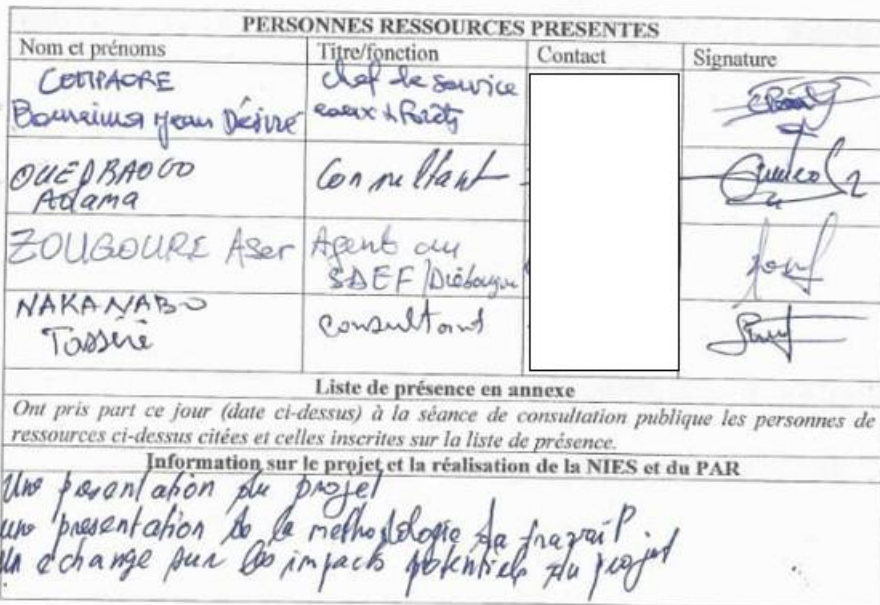 PERSONNES RESSOURCES PRESENTES
Nom et prénoms Titre/fonction Contact Signature
COMPAORE chef de service
Bouraima Jean Désiré eaux & Forêts
OUEDRAOGO Consultant
Adama
ZOUGOURE Aser Agent au
SDEF/Diébougou
NAKANABO consultant
Tasséré
Liste de présence en annexe
Ont pris part ce jour (date ci-dessus) à la séance de consultation publique les personnes de
ressources ci-dessus citées et celles inscrites sur la liste de présence.
Information sur le projet et la réalisation de la NIES et du PAR
Une présentation du projet
une présentation de la méthodologie de travail
un échange sur les impacts potentiels du projet